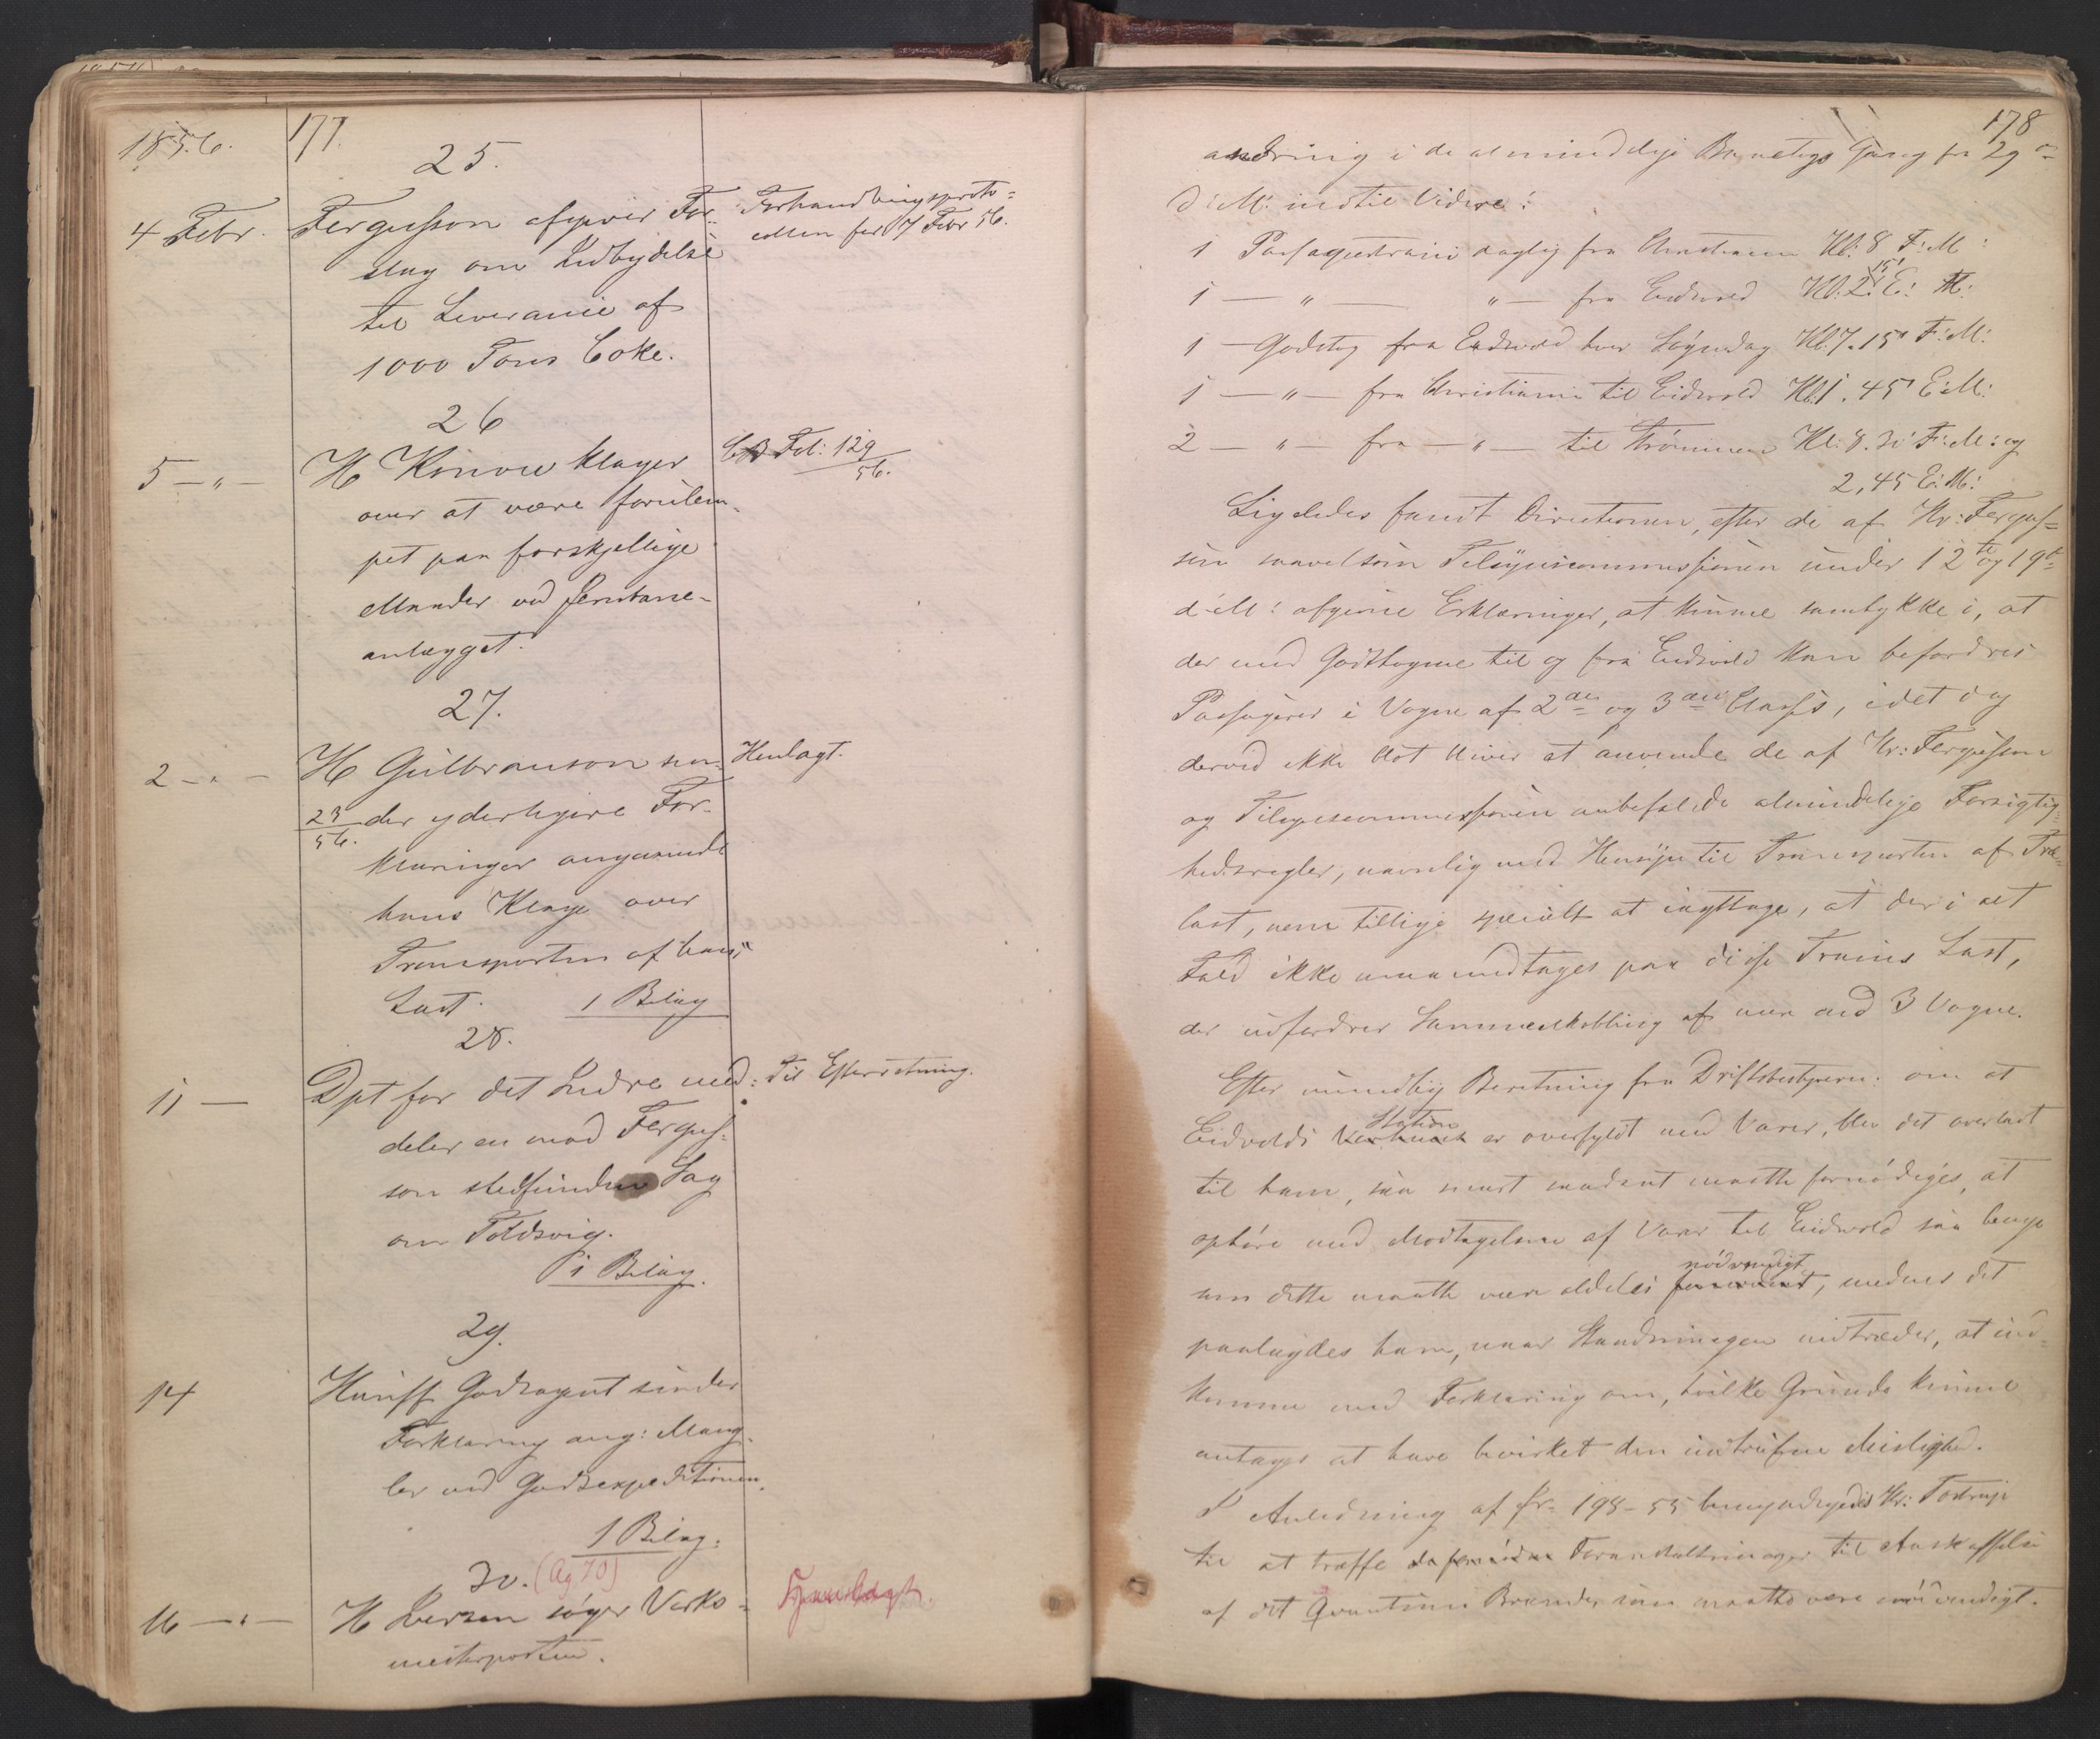 1856.
177.
25.
4 Febr. Fergusson afgiver For-
slag om Indbydelse
til Leverance af
1000 Tons Coke.
Forhandlingsproto-
collen for 7 Febr 56.
26
5 — " — H Kinou klager
over at være forulem-
pet paa forskjellige
Maader ved Jernbane-
anlægget.
CB Fol: 129
56.
27.
2 — " — H Gulbranson sen-
23 der yderligere For-
56.
klaringer angaaende
hans Klage over
Transporten af hans
Last. 1 Bilag
Henlagt.
28.
11 — Dpt for det Indre med-
deler en mod Fergus-
son stedfunden Sag
om Toldsvig.
1 Bilag.
Til Efterretning.
29.
14 Hanff Godsagent sender
Forklaring ang: Mang-
ler ved Godsexpeditionen.
1 Bilag.
30. (Ag 70)
16 — " — H Iversen søger Værk-
mesterposten.
Henlagt.
178
andring i de almindelige Banetogs Gang fra 29
d: M: indtil Videre:
1 Passagertrain daglig fra Christiania Kl: 8 F: M:
1 — " — " — fra Eidsvold Kl. 2. 15' E: M:
1 — Godstog fra Eidsvold hver Løverdag Kl. 7. 15' F: M:
1 — " — fra Christiania til Eidsvold Kl. 1. 45' E: M:
2 — " — fra — " — til Strømmen Kl: 8. 30 F: M: og
2,45 E: M:
Ligeledes fandt Directionen, efter de af Hr: Fergus-
son saavelsom Tilsynscommissionen under 12te og 19de
d: M: afgivne Erklæringer, at kunne samtykke i, at
der med Godstogene til og fra Eidsvold kan befordres
Passagerer i Vogne af 2den og 3die Classe, idet dog
derved ikke blot bliver at anvende de af Hr: Fergusson
og Tilsynscommissionen anbefalede almindelige Forsigtig-
hedsregler, navnlig med Hensyn til Transporten af Træ-
last, men tillige specielt at iagttage, at der i alt
Fald ikke maa medtages paa disse Trains Last,
der udfordrer Sammenkobling af mere end 3 Vogne.
Efter mundtlig Beretning fra Driftsbestyreren om at
Eidsvolds Station er overfyldt med Varer, blev det overladt
til ham, saa snart saadant maatte fornødiges, at
ophøre med Modtagelsen af Varer til Eidsvold saa længe
som dette maatte være aldeles nødvendigt, medens det
paalagdes ham, naar Standsningen indtræder, at ind-
komme med Forklaring om, hvilke Grunde kunne
antages at have bevirket den indtrufne Mislighed.
I Anledning af Jr: 198-55 bemyndigedes Hr: Tostrup
til at træffe Foranstaltninger til Anskaffelse
af det Qvantum Brænde, som maatte være nødvendigt.